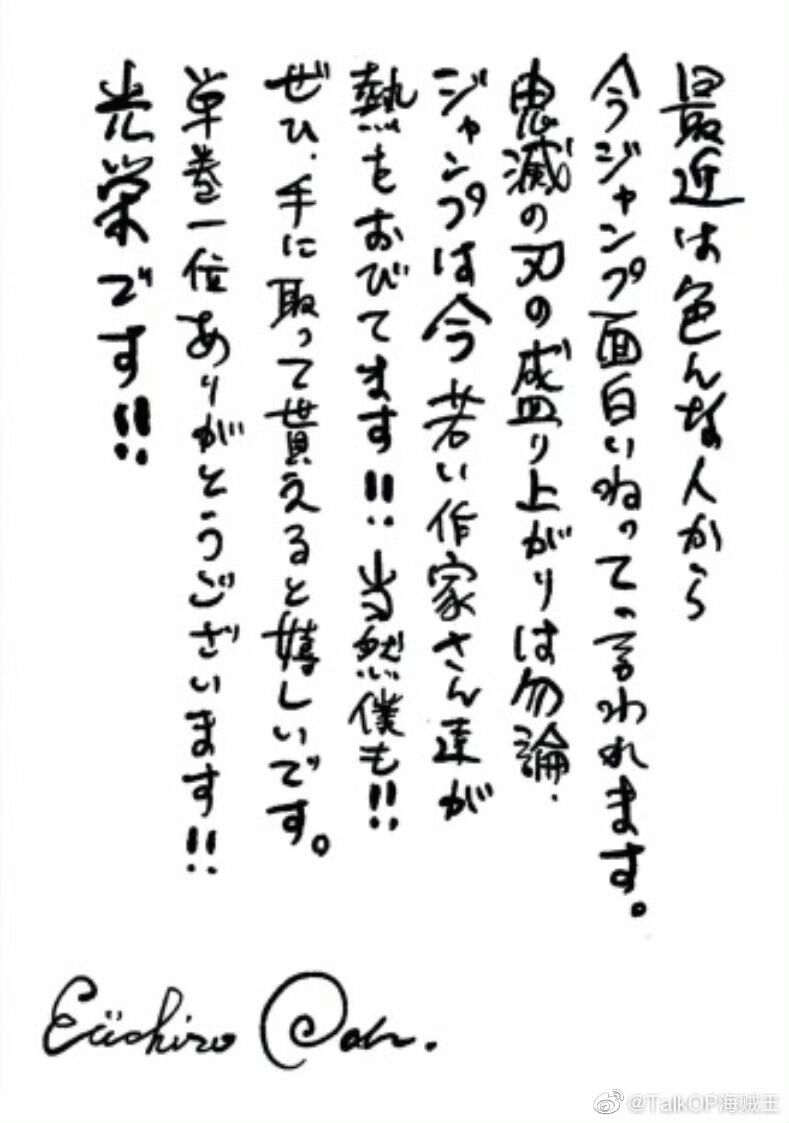 最近は色んな人から
今ジャンプ面白いねって言われます。
鬼滅の刃の盛り上がりは勿論、
ジャンプは今若い作家さん達が
熱をおびてます!!当然僕も!!
ぜひ、手に取って貰えると嬉しいです。
単巻一位ありがとうございます!!
光栄です!!
Eiichiro Oda.
@TalkOP海贼王